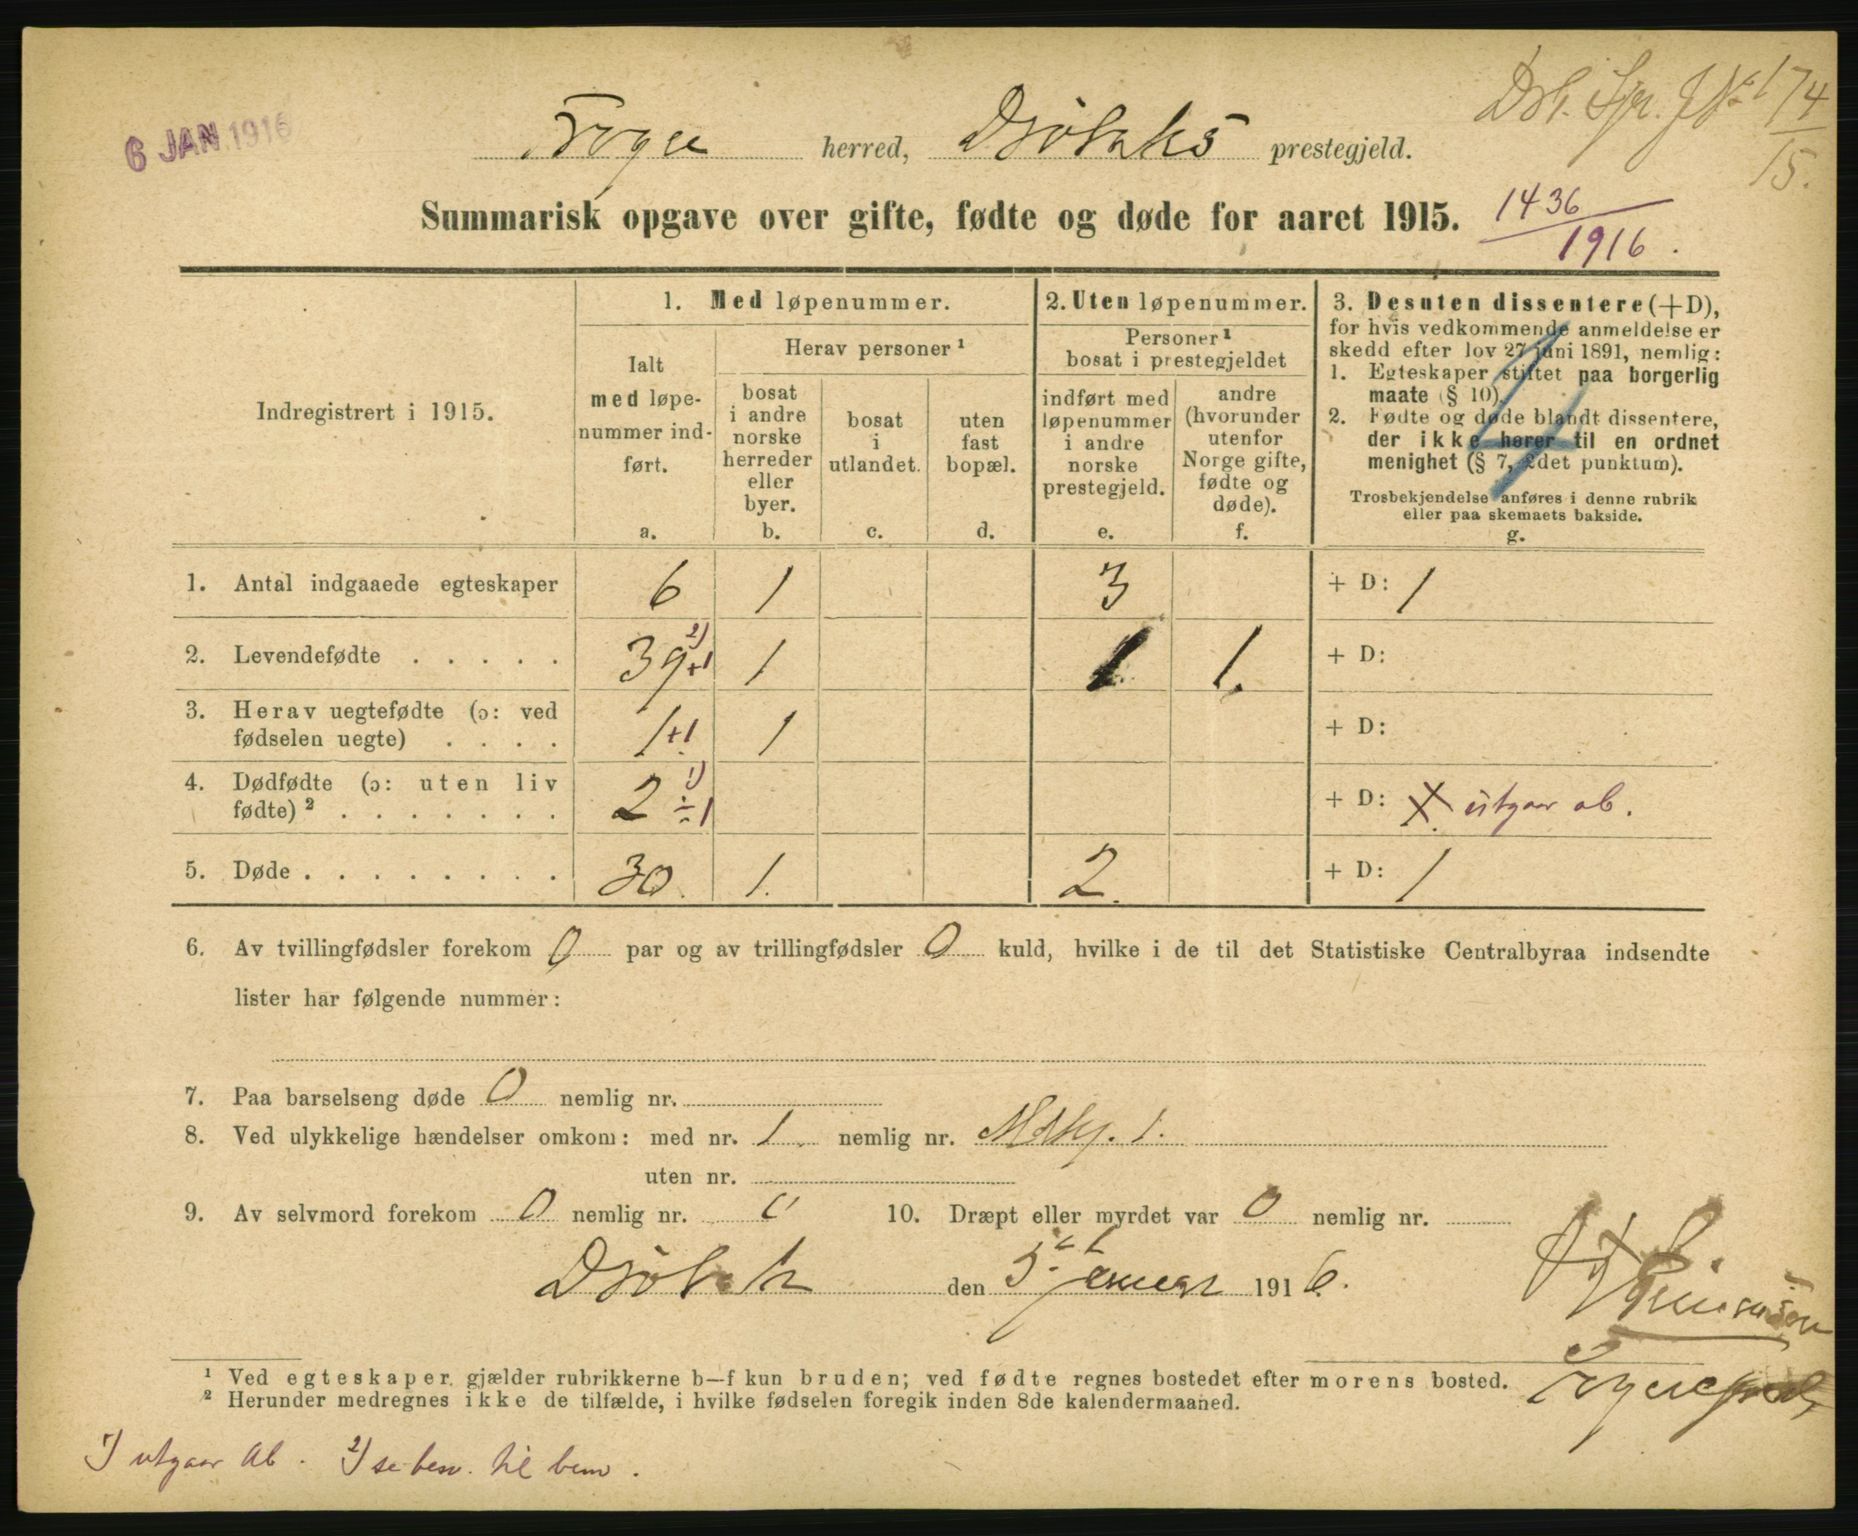 6 JAN 1916
Drb. Spr. J. No 174/15.
Frogn herred, Drøbaks prestegjeld.
Summarisk opgave over gifte, fødte og døde for aaret 1915.
1436/1916.
Indregistrert i 1915.
1. Med løpenummer.
Ialt
med løpe-
nummer ind-
ført.
a.
Herav personer ¹
bosat
i andre
norske
herreder
eller
byer.
b.
bosat
i
utlandet.
c.
uten
fast
bopæl.
d.
2. Uten løpenummer.
Personer ¹
bosat i prestegjeldet
indført med
løpenummer
i andre
norske
prestegjeld.
e.
andre
(hvorunder
utenfor
Norge gifte,
fødte og
døde).
f.
3. Desuten dissentere (+D),
for hvis vedkommende anmeldelse er
skedd efter lov 27 juni 1891, nemlig:
1. Egteskaper stiftet paa borgerlig
maate (§ 10).
2. Fødte og døde blandt dissentere,
der ikke hører til en ordnet
menighet (§ 7, 2det punktum).
Trosbekjendelse anføres i denne rubrik
eller paa skemaets bakside.
g.
1. Antal indgaaede egteskaper 6 1 3 + D: 1
2. Levendefødte . . . . . 39 2) +1 1 1. 1. + D:
3. Herav uegtefødte (ɔ: ved
fødselen uegte) . . . . 1 +1. 1 + D:
4. Dødfødte (ɔ: uten liv
fødte) ² . . . . . . . 2 1) ÷1 + D: X utgaar ab.
5. Døde . . . . . . . . 30. 1. 2. + D: 1
6. Av tvillingfødsler forekom 0 par og av trillingfødsler 0 kuld, hvilke i de til det Statistiske Centralbyraa indsendte
lister har følgende nummer:
7. Paa barselseng døde 0 nemlig nr.
8. Ved ulykkelige hændelser omkom: med nr. 1. nemlig nr. Mdkj. 1.
uten nr.
9. Av selvmord forekom 0 nemlig nr. 0 10. Dræpt eller myrdet var 0 nemlig nr.
Drøbak den 5. januar 1916.
Sogneprest
¹ Ved egteskaper gjælder rubrikkerne b—f kun bruden; ved fødte regnes bostedet efter morens bosted.
² Herunder medregnes ikke de tilfælde, i hvilke fødselen foregik inden 8de kalendermaaned.
1) utgaar ab. 2) se besv. til bem.